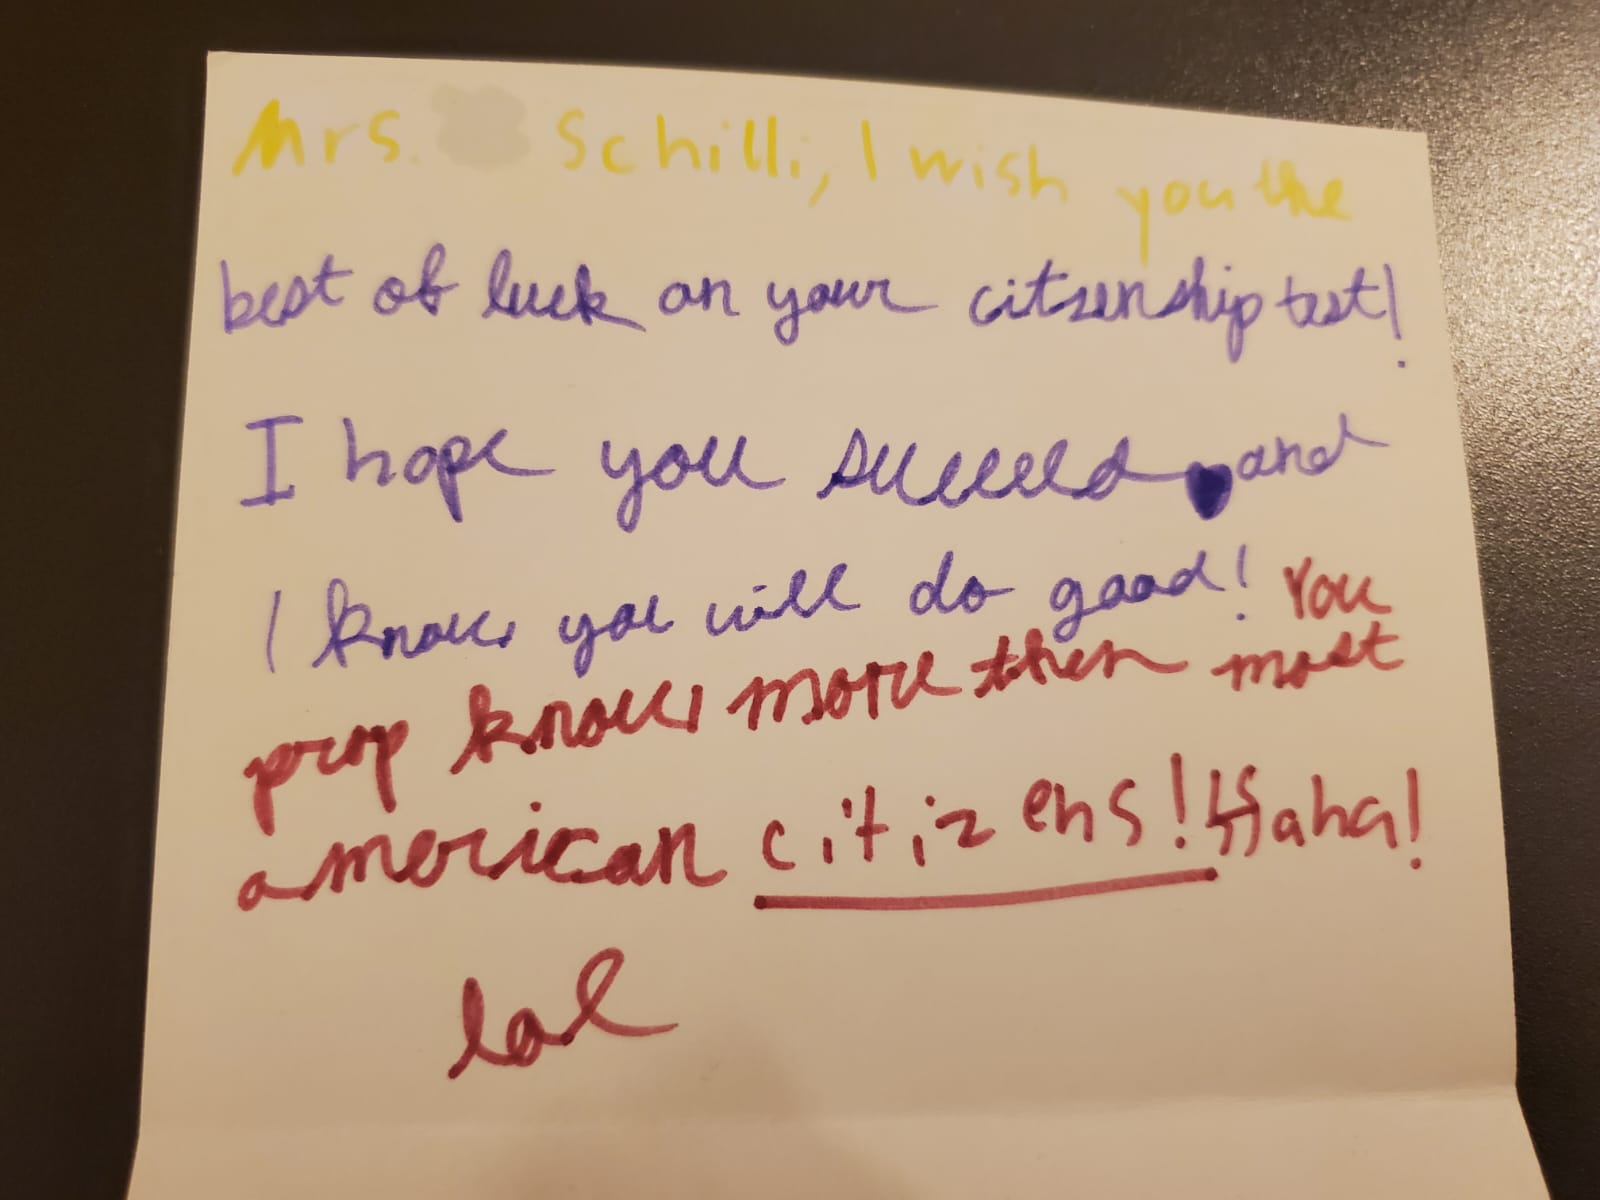 Mrs. Schilli, I wish you the
best of luck on your citzenship test!
I hope you succeed and
I know you will do good! You
prop know more then most
american citizens! Haha!
lol